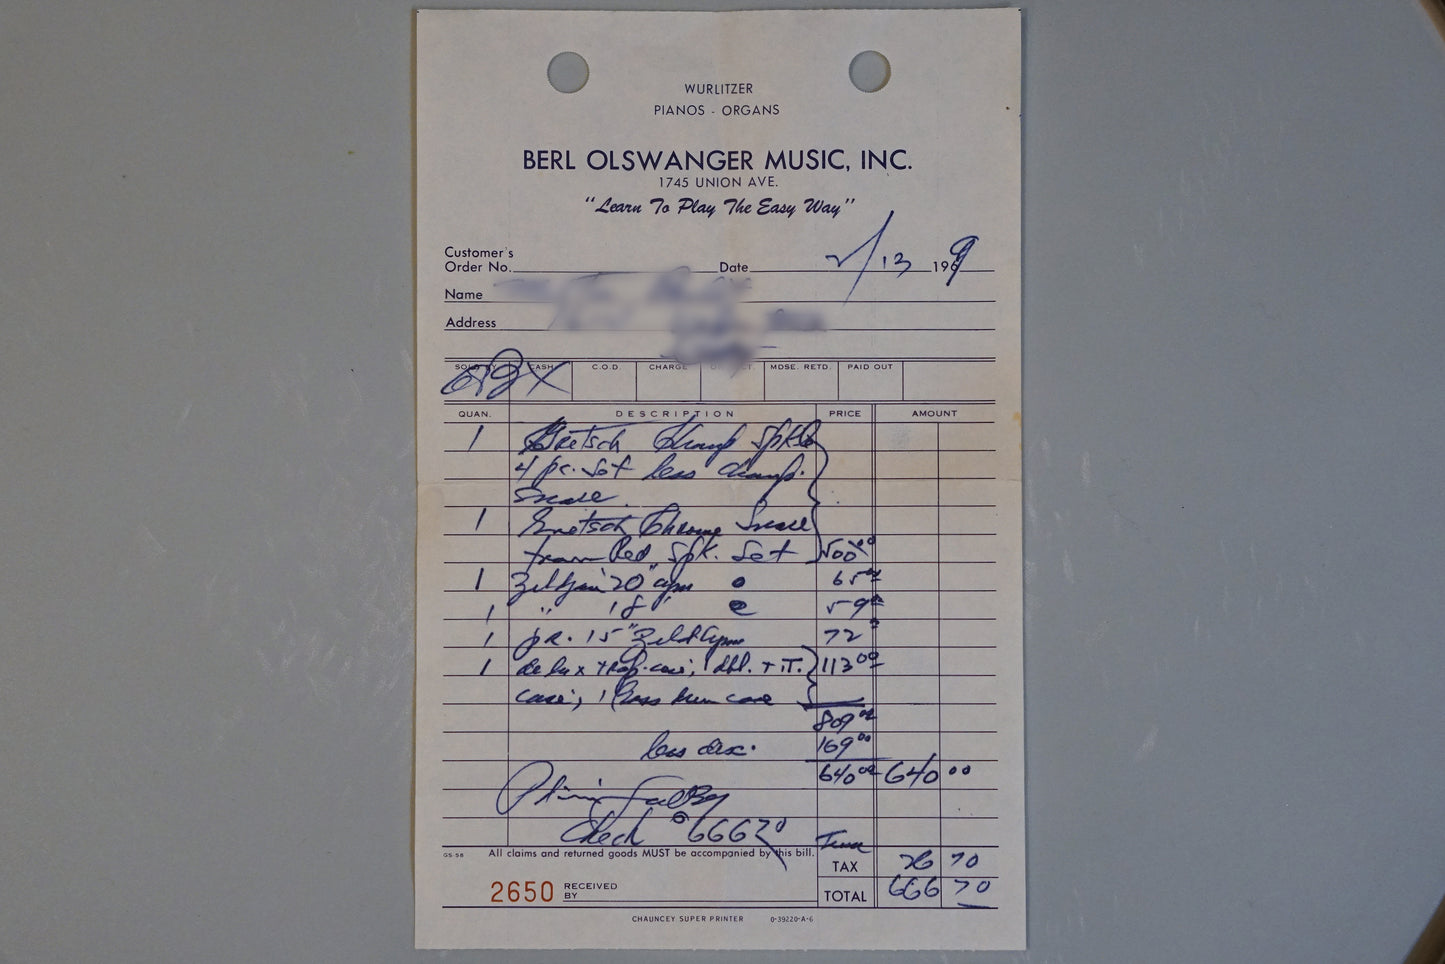 WURLITZER
PIANOS - ORGANS
BERL OLSWANGER MUSIC, INC.
1745 UNION AVE.
"Learn To Play The Easy Way"
Customer's
Order No. Date 2/13 1969
Name
Address
SOLD BY CASH C.O.D. CHARGE MDSE. RETD. PAID OUT
X
QUAN. DESCRIPTION PRICE AMOUNT
1 Gretsch Champ Spkle
4 pc. Set less champ.
Snare
1 Gretsch Chrome Snare
from Red Spk. Set 500 00
1 Zildjian 20" cym 65 00
1 " 18" 59 00
1 pr. 15" Zild Cym 72
1 delux trap case, 1 dbl. T.T. 113 00
case, 1 Bass Drum case
809 00
less disc. 169 00
640 00 640 00
Check 666 70
GS 58 All claims and returned goods MUST be accompanied by this bill.
TAX 26 70
2650 RECEIVED BY TOTAL 666 70
CHAUNCEY SUPER PRINTER 0-39220-A-6